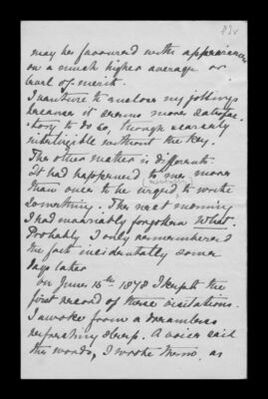 82v
may be favoured with appearances
on a much higher average or
level of merit.
I venture to enclose my jottings
because it seems more satisfac-
-tory to do so, though scarcely
intelligible without the key.
The other matter is different.
It had happened to me more
than once to be urged to write
something. The next morning
I had invariably forgotten What.
Probably I only remembered
the fact incidentally some
days later
on June 15th 1878 I kept the
first record of these visitations.
I awoke from a dreamless
refreshing sleep. A voice said
the words, I wrote them, as